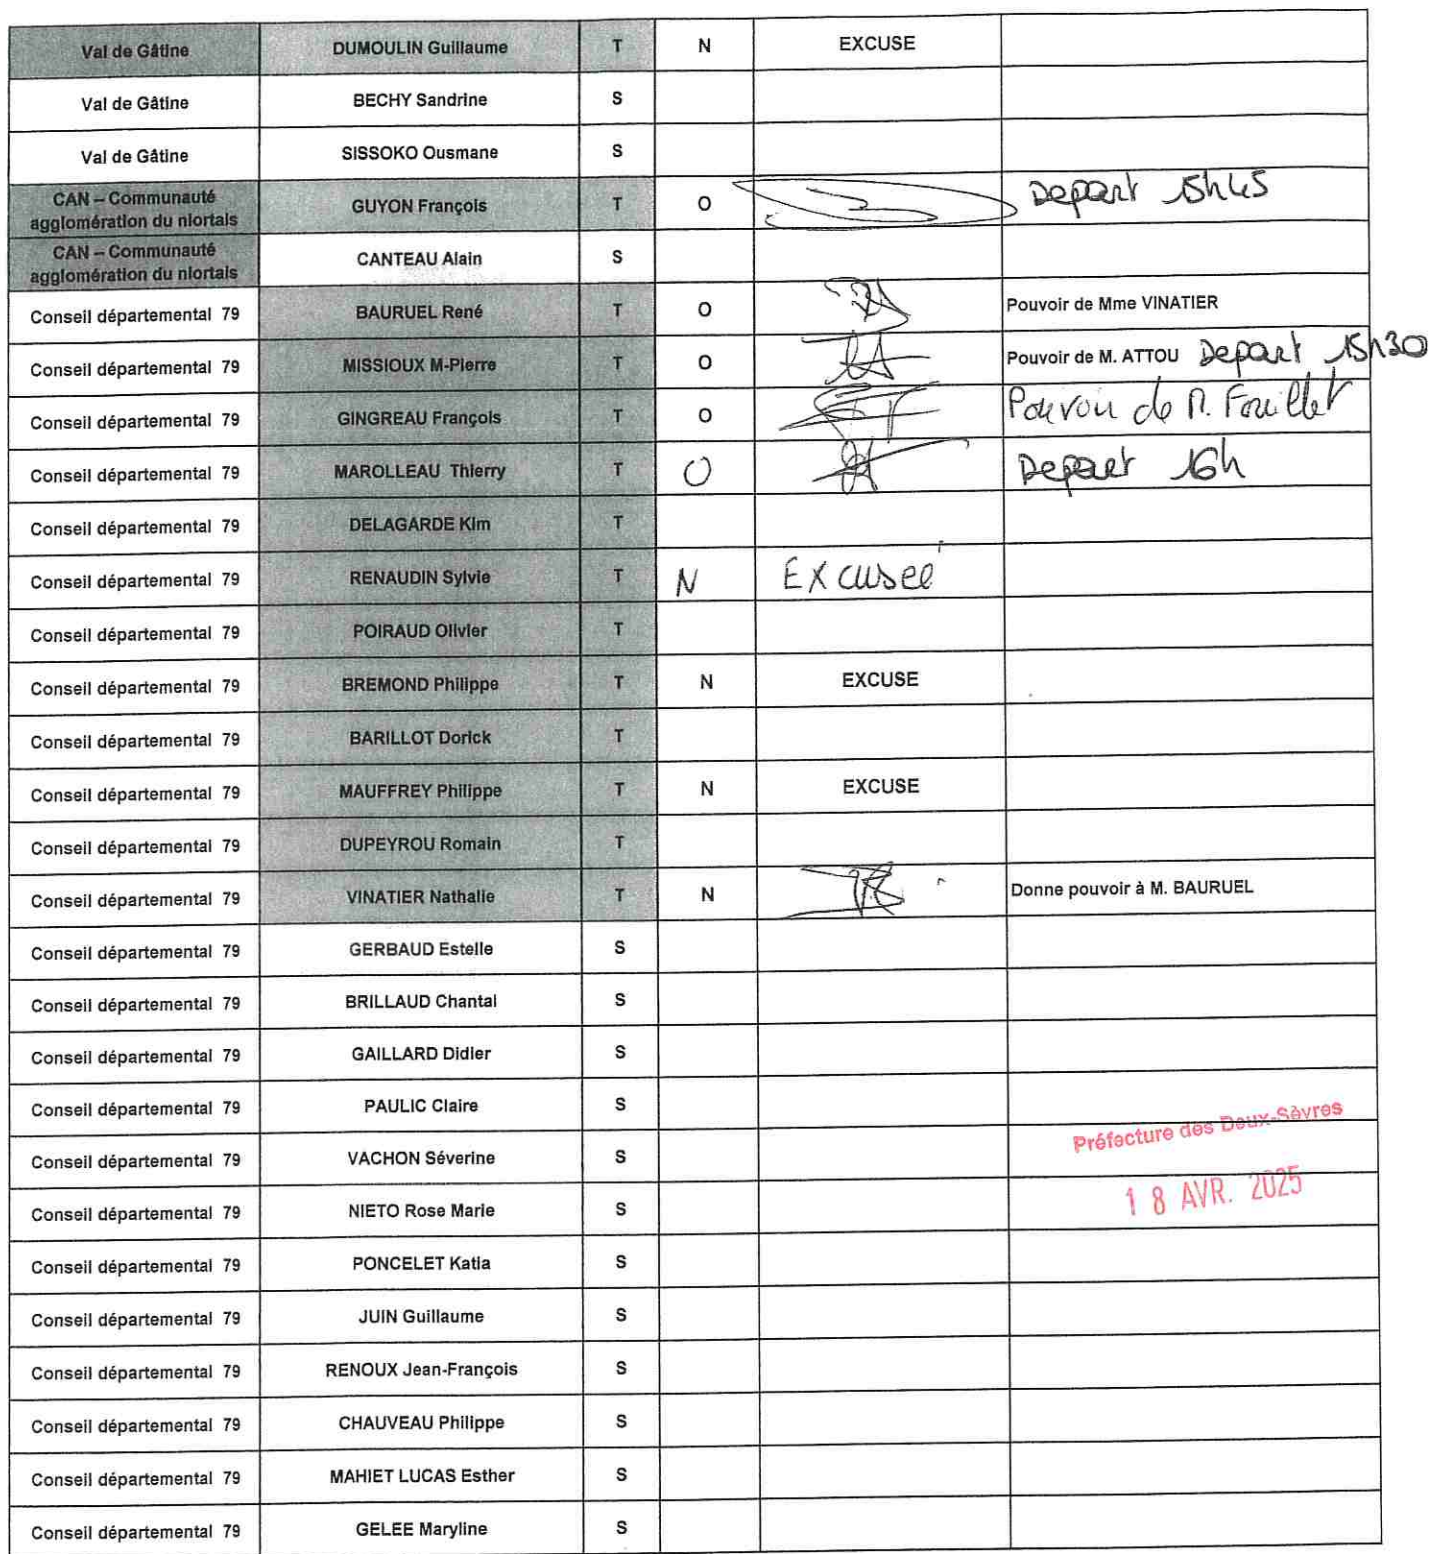 Val de Gâtine DUMOULIN Guillaume T N EXCUSE
Val de Gâtine BECHY Sandrine S
Val de Gâtine SISSOKO Ousmane S
CAN – Communauté
agglomération du niortais GUYON François T O Depart 15h45
CAN – Communauté
agglomération du niortais CANTEAU Alain S
Conseil départemental 79 BAURUEL René T O Pouvoir de Mme VINATIER
Conseil départemental 79 MISSIOUX M-Pierre T O Pouvoir de M. ATTOU Depart 15h30
Conseil départemental 79 GINGREAU François T O Pouvoir de M. Fouillet
Conseil départemental 79 MAROLLEAU Thierry T O Depart 16h
Conseil départemental 79 DELAGARDE Kim T
Conseil départemental 79 RENAUDIN Sylvie T N Excusée
Conseil départemental 79 POIRAUD Olivier T
Conseil départemental 79 BREMOND Philippe T N EXCUSE
Conseil départemental 79 BARILLOT Dorick T
Conseil départemental 79 MAUFFREY Philippe T N EXCUSE
Conseil départemental 79 DUPEYROU Romain T
Conseil départemental 79 VINATIER Nathalie T N Donne pouvoir à M. BAURUEL
Conseil départemental 79 GERBAUD Estelle S
Conseil départemental 79 BRILLAUD Chantal S
Conseil départemental 79 GAILLARD Didier S
Conseil départemental 79 PAULIC Claire S
Préfecture des Deux-Sèvres
Conseil départemental 79 VACHON Séverine S
18 AVR. 2025
Conseil départemental 79 NIETO Rose Marie S
Conseil départemental 79 PONCELET Katia S
Conseil départemental 79 JUIN Guillaume S
Conseil départemental 79 RENOUX Jean-François S
Conseil départemental 79 CHAUVEAU Philippe S
Conseil départemental 79 MAHIET LUCAS Esther S
Conseil départemental 79 GELEE Maryline S